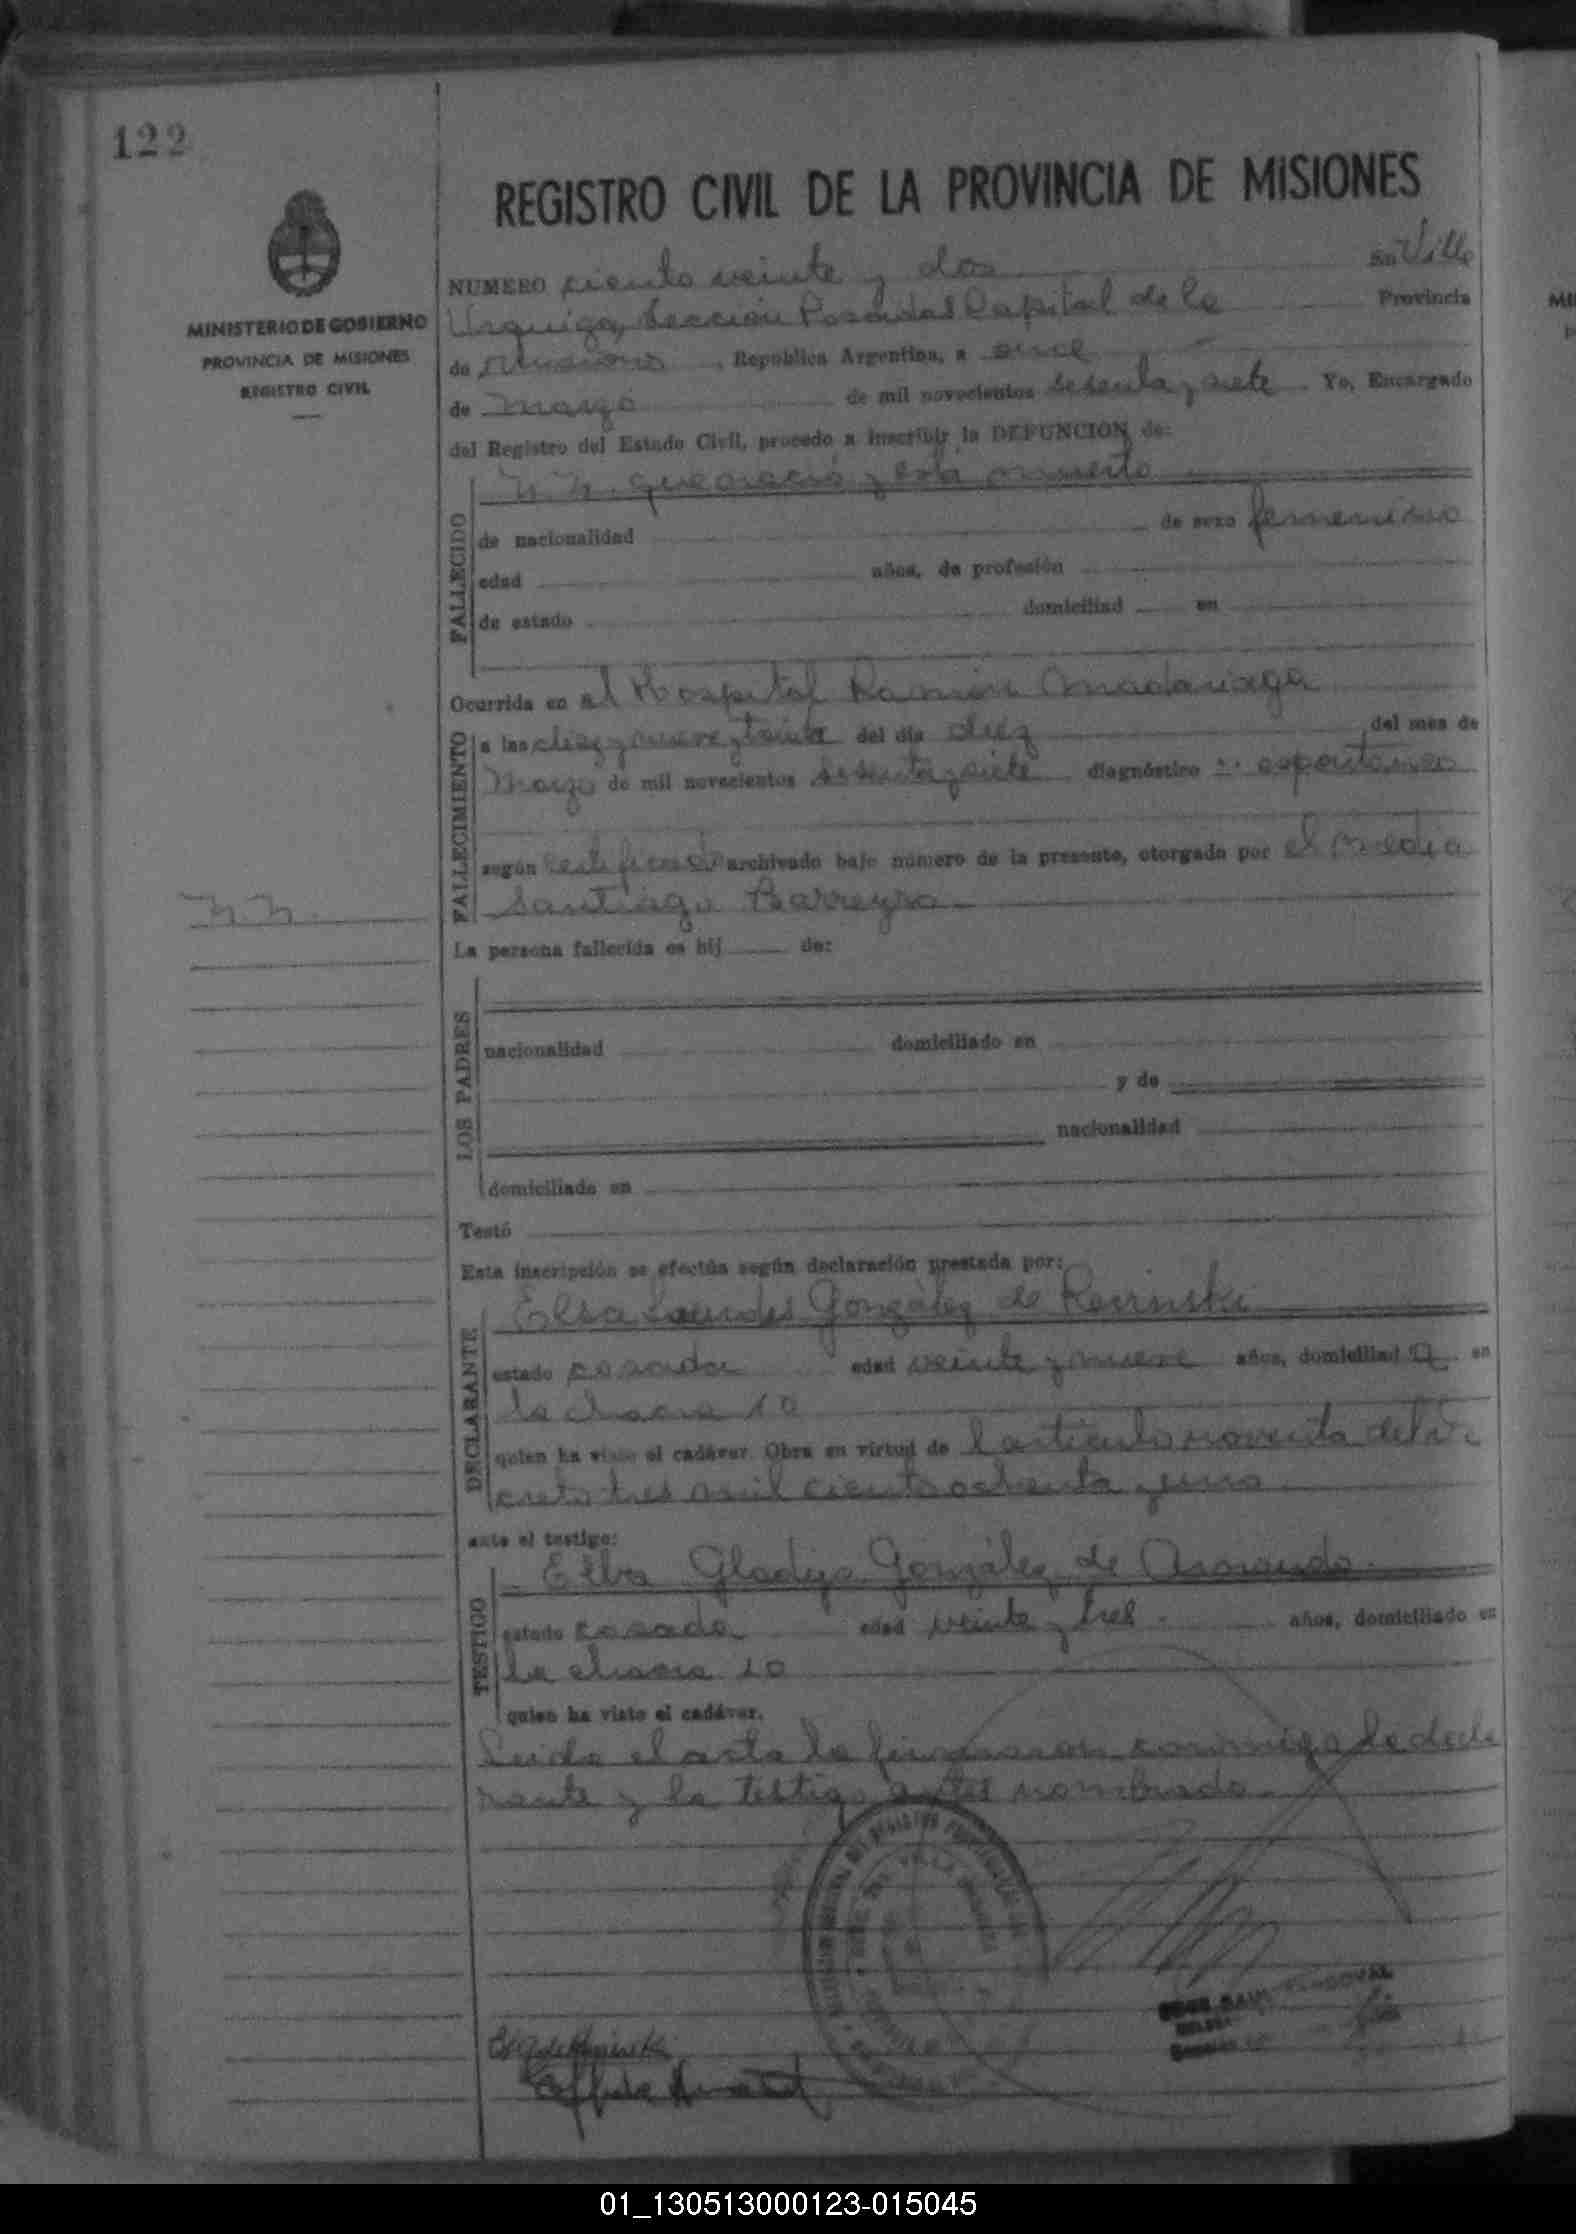 122
REGISTRO CIVIL DE LA PROVINCIA DE MISIONES
MINISTERIO DE GOBIERNO
PROVINCIA DE MISIONES
REGISTRO CIVIL
NUMERO ciento veinte y dos En Villa
Urquiza, Sección Posadas Capital de la Provincia
de Misiones, República Argentina, a once
de Marzo de mil novecientos sesenta y siete Yo, Encargado
del Registro del Estado Civil, procedo a inscribir la DEFUNCION de:
FALLECIDO
N. N. que nació y está muerto
de nacionalidad de sexo femenino
edad años, de profesión
de estado domiciliad en
Ocurrida en el Hospital Ramón Madariaga
FALLECIMIENTO
a las diez y nueve y treinta del día diez del mes de
Marzo de mil novecientos sesenta y siete diagnóstico espontaneo
según certificado archivado bajo número de la presente, otorgado por el medico
Santiago Barreyro
N. N.
La persona fallecida es hij de:
LOS PADRES
nacionalidad domiciliado en
y de
nacionalidad
domiciliado en
Testó
Esta inscripción se efectúa según declaración prestada por:
DECLARANTE
Elsa Lourdes González de
estado casada edad veinte y nueve años, domiciliad a en
la chacra 10
quien ha visto el cadáver. Obra en virtud de l articulo noventa del de
creto tres mil ciento ochenta y uno
ante el testigo:
TESTIGO
Elba Gladys González de
estado casada edad veinte y tres años, domiciliado en
la chacra 10
quien ha visto el cadáver.
Leida el acta la firmaron conmigo la decla
rante y la testigo antes nombrada
01_130513000123-015045